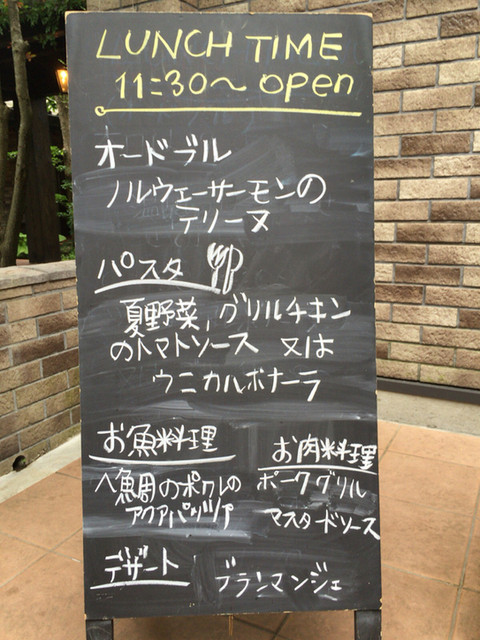 LUNCH TIME
11:30〜 open
オードブル
ノルウェーサーモンの
テリーヌ
パスタ
夏野菜,グリルチキン
のトマトソース 又は
ウニカルボナーラ
お魚料理
のポワレの
アクアパッツァ
お肉料理
ポークグリル
マスタードソース
デザート
ブランマンジェ